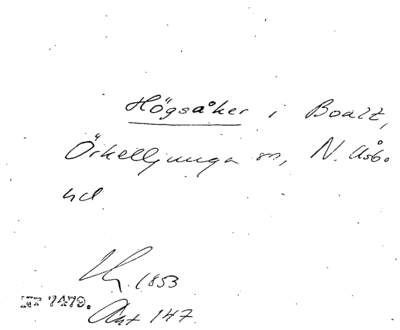 Högsåker i Boalt,
Örkelljunga sn, N. Åsb.
hd
1853
NT 7479.
Akt 147